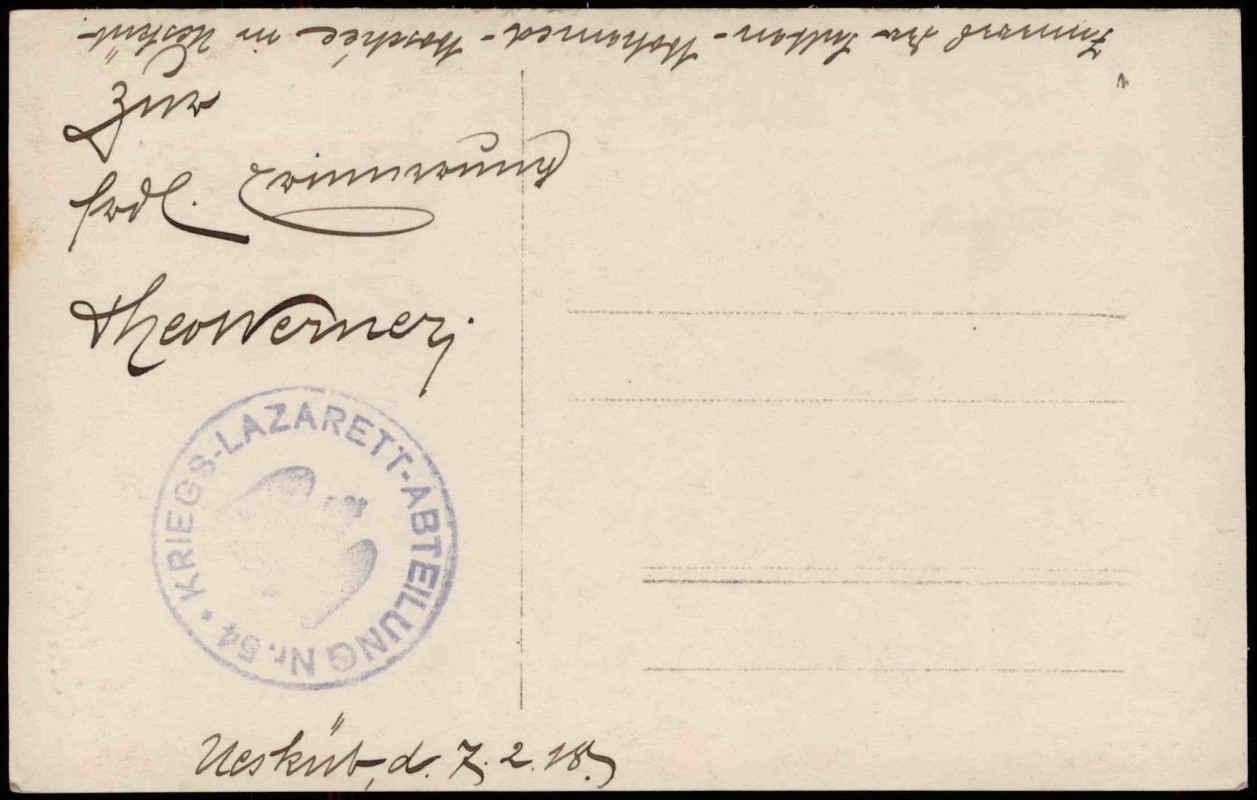 Inneres der Sultan-Mohamed-Moschee in Uesküb.
Zur
frdl. Erinnerung
Theo Werner.
KRIEGS-LAZARETT-ABTEILUNG Nr. 54
Uesküb, d. 7.2.18.